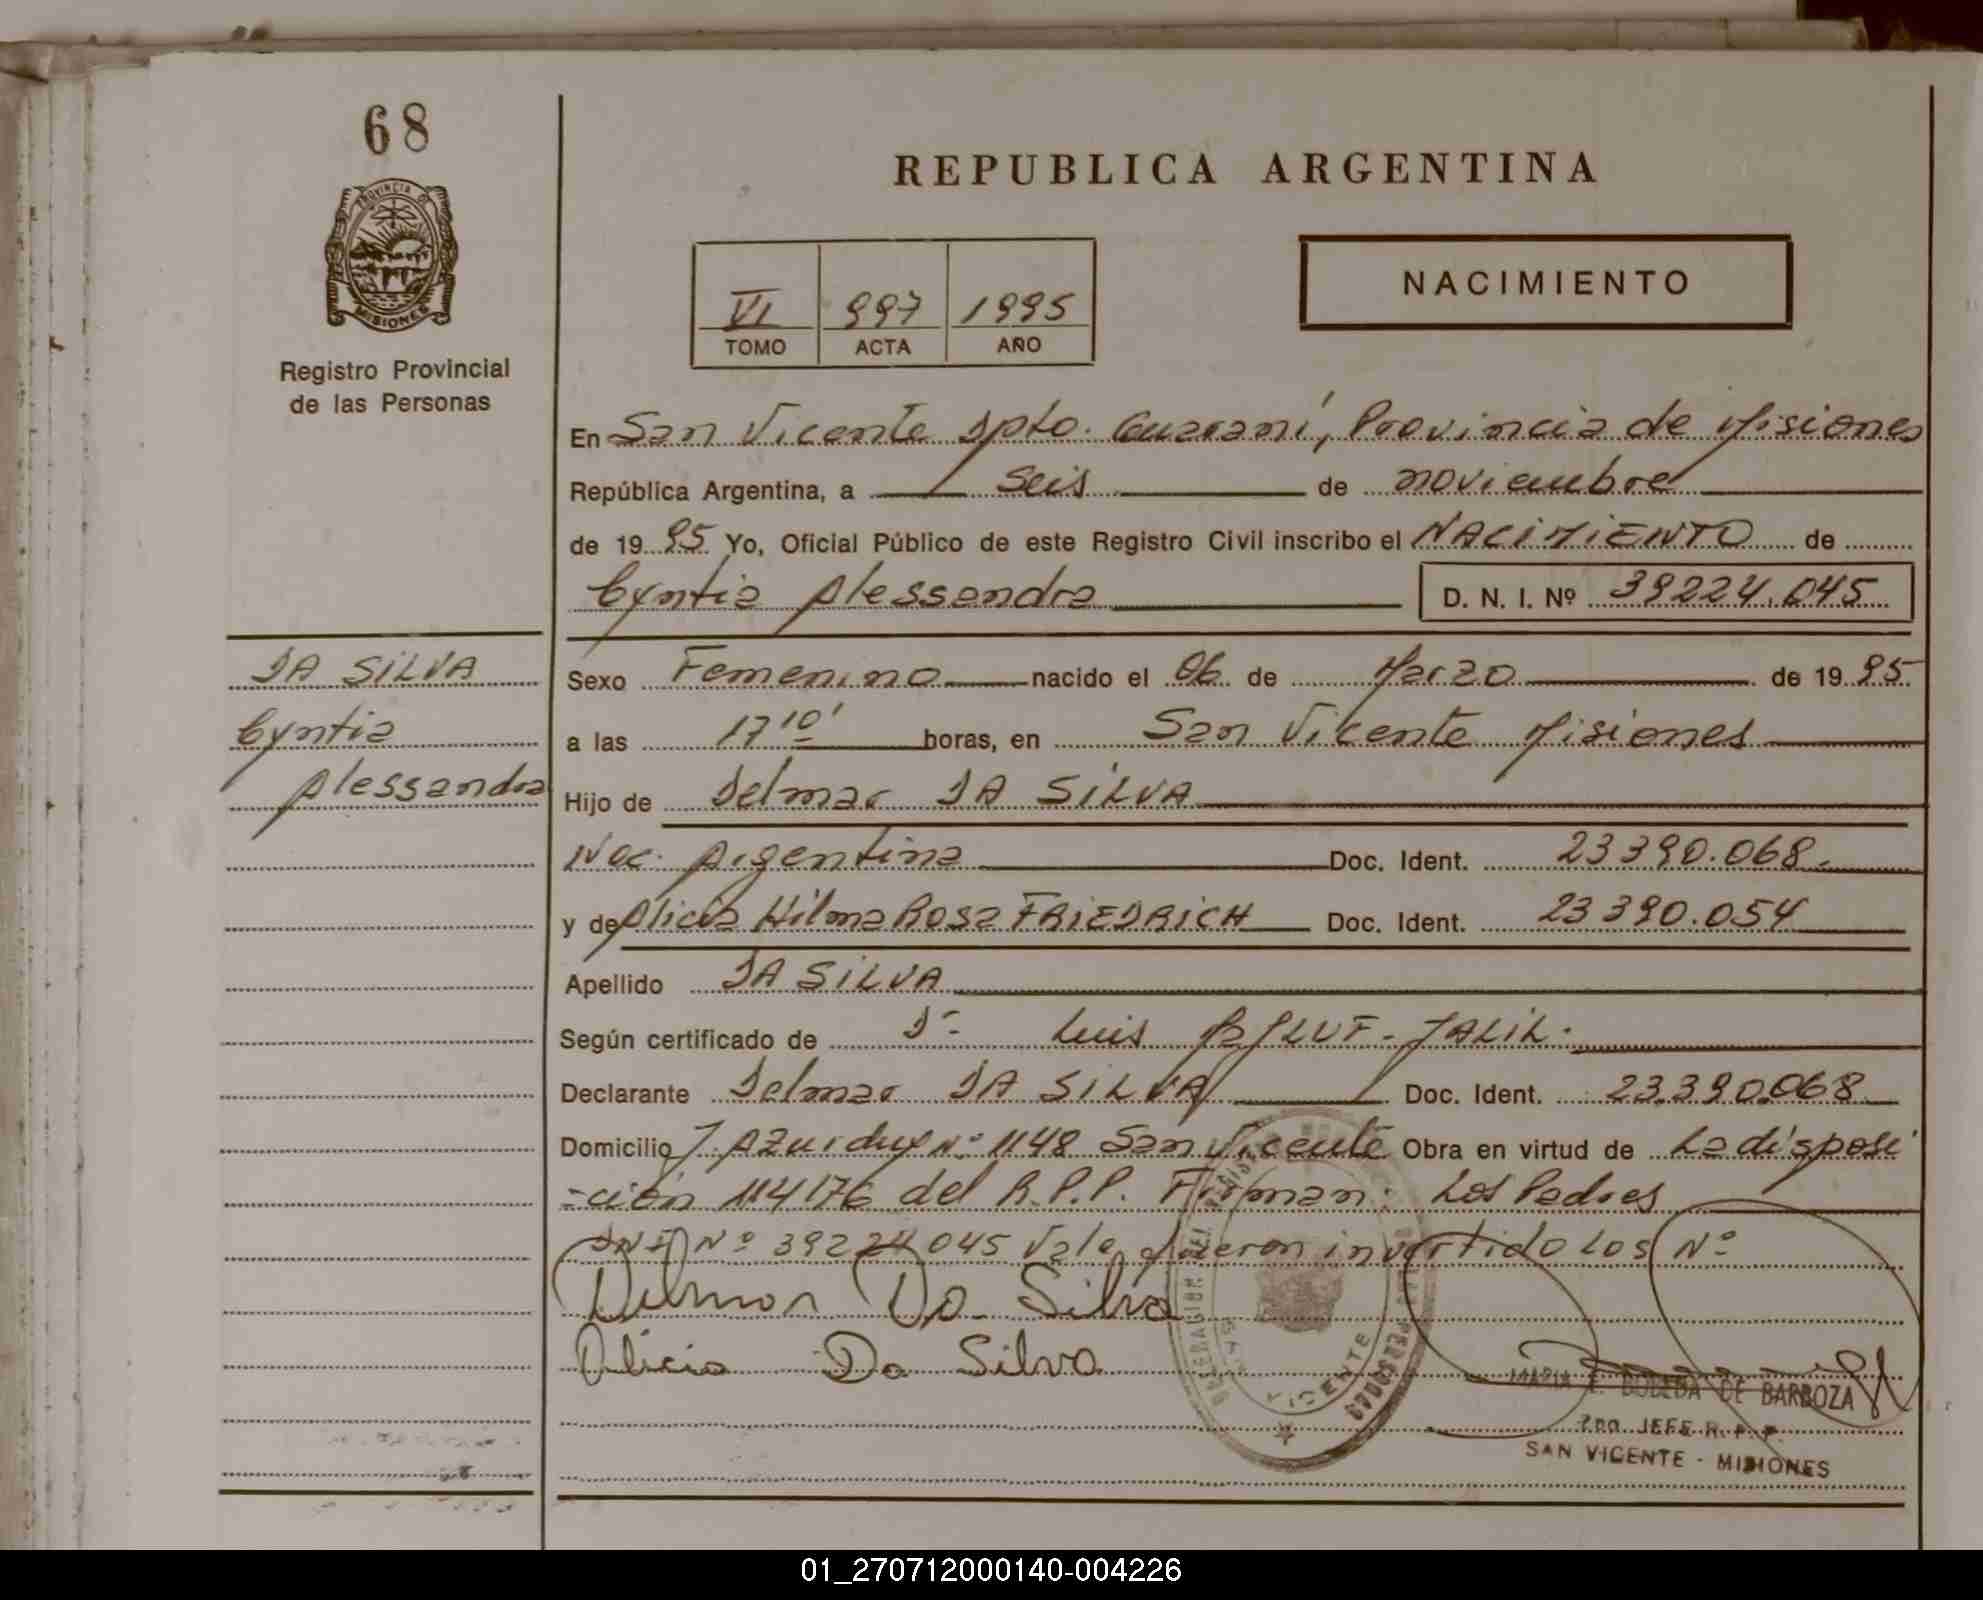 68
PROVINCIA DE
MISIONES
Registro Provincial
de las Personas
REPUBLICA ARGENTINA
VI 997 1995
TOMO ACTA AÑO
NACIMIENTO
En San Vicente Dpto. Guaraní, Provincia de Misiones
República Argentina, a seis de noviembre
de 1995 Yo, Oficial Público de este Registro Civil inscribo el NACIMIENTO de
Cyntia Alessandra D. N. I. Nº 39224.045
DA SILVA
Cyntia
Alessandra
Sexo Femenino nacido el 06 de Marzo de 1995
a las 17 10' horas, en San Vicente Misiones
Hijo de Delmar DA SILVA
Nac. Argentina Doc. Ident. 23390.068.
y de Alicia Hilma Rosa FRIEDRICH Doc. Ident. 23390.054
Apellido DA SILVA
Según certificado de Dr Luis JALIL.
Declarante Delmar DA SILVA Doc. Ident. 23.390.068
Domicilio J. Azurduy Nº 1148 San Vicente Obra en virtud de La disposi
-ción 114176 del R.P.P. Firman: Los Padres
DNI Nº 39224045 Vale fueron invertido Los Nº
Delmar Da Silva
Alicia Da Silva
VICENTE
MARIA E. DE BARBOZA
JEFE R. P. P.
SAN VICENTE - MISIONES
01_270712000140-004226